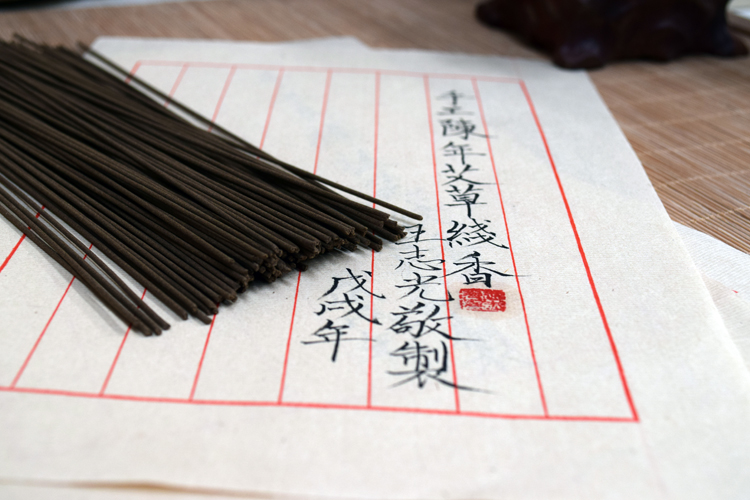 手工陳年艾草綫香
王志光敬製
戊戌年